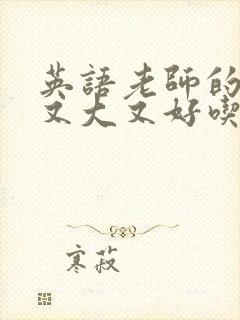 英語老師的
又大又好喫
寒菽